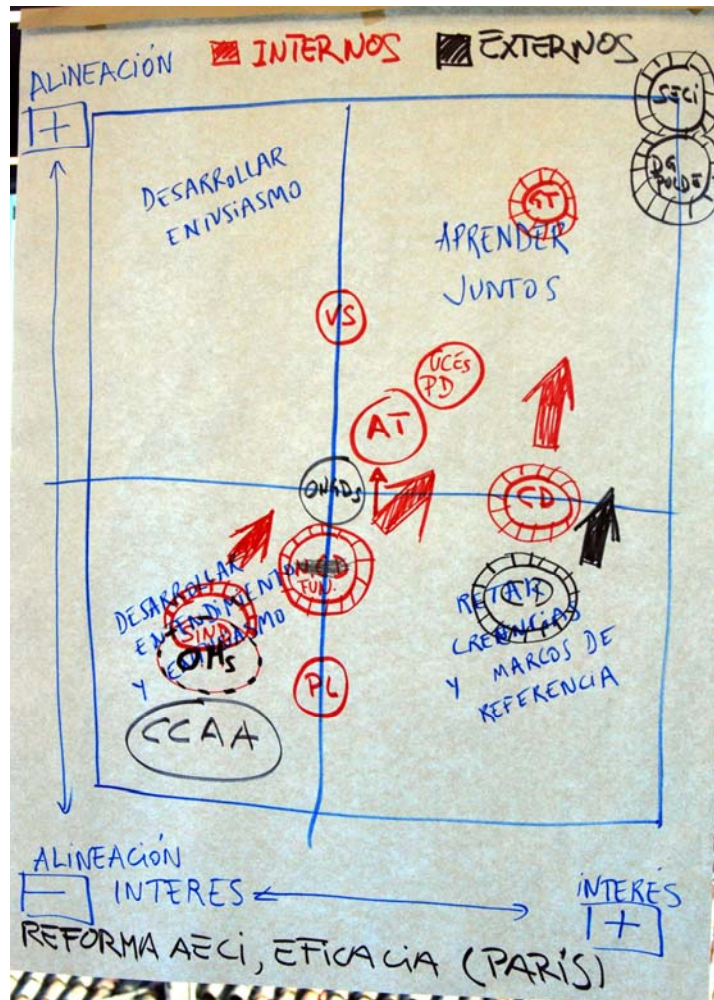 INTERNOS EXTERNOS
ALINEACIÓN
+
SECI
DG
POLDE
DESARROLLAR
ENTUSIASMO
GT
APRENDER
JUNTOS
VS
UCEs
PD
AT
ONGDs
CD
FUN.
DESARROLLAR
ENTENDIMIENTO
Y ENTUSIASMO
SIND
OMs
CCAA
PL
CD
RETAR
CREENCIAS
Y MARCOS DE
REFERENCIA
ALINEACIÓN
−
INTERES
INTERÉS
+
REFORMA AECI, EFICACIA (PARÍS)